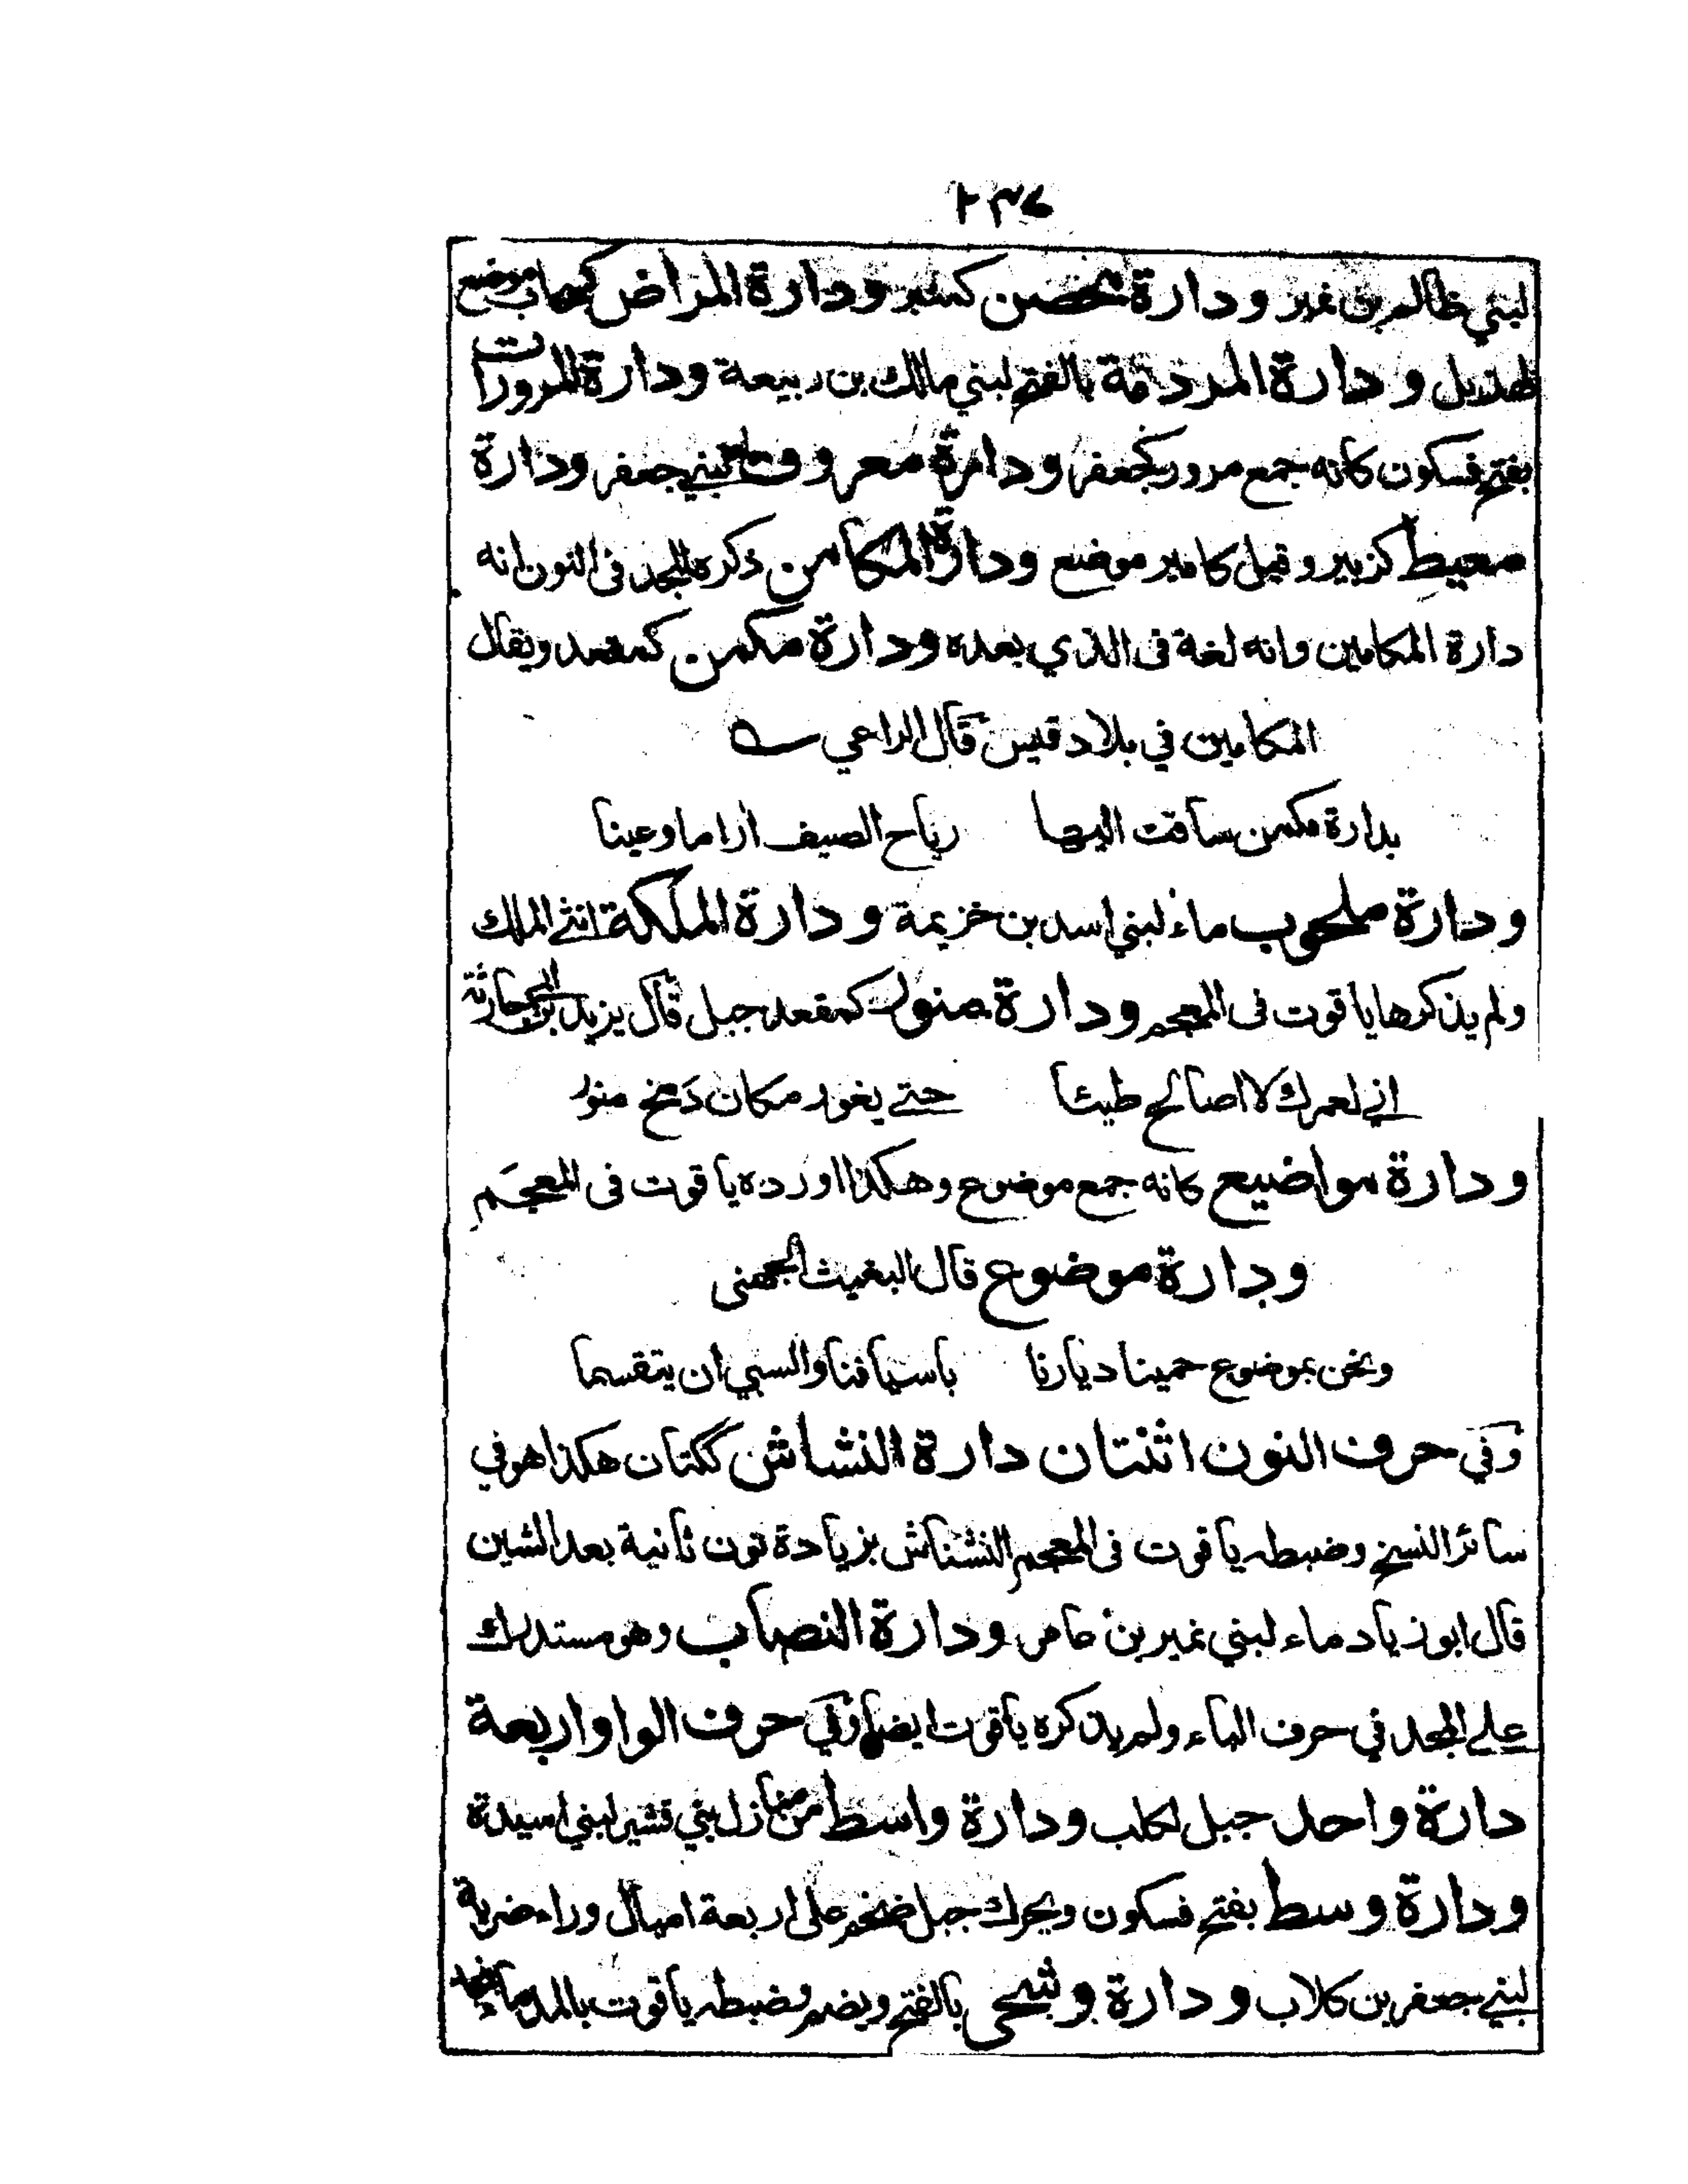 ٢٣٧
لبني ظالم بن نمير ودارة محصن كمنبر ودارة المراض كسحاب موضع
لهذيل ودارة المردمة بالفتح لبني مالك بن ربيعة ودارة المرورات
بفتح فسكون كانه جمع مرور كجعفر ودارة معروف لبني جعفر ودارة
معيط كزبير وقيل كامير موضع ودارة المكامن ذكره المجد فى النون انه
دارة المكامين وانه لغة فى الذي بعده ودارة مكمن كمقعد ويقال
المكامين في بلاد قيس قال الراعي
بدارة مكمن ساقت اليها رياح الصيف اراما وعينا
ودارة ملحوب ماء لبني اسد بن خزيمة ودارة الملكة انثى الملك
ولم يذكرها ياقوت فى المعجم ودارة منور كمقعد جبل قال يزيد بن ابي حارثة
اني لعمرك لا اصالح طيئا حتى يغور مكان دمخ منور
ودارة مواضيع كانه جمع موضوع وهكذا اورده ياقوت فى المعجم
ودارة موضوع قال البغيث الجهنى
ونحن بموضوع حمينا ديارنا باسيافنا والسبي ان يتقسما
وفي حرف النون اثنتان دارة النشاش ككتان هكذا هو في
سائر النسخ وضبطه ياقوت فى المعجم النشناش بزيادة نون ثانية بعد الشين
قال ابو زياد ماء لبني نمير بن عامر ودارة النصاب وهو مستدرك
على المجد في حرف الباء ولم يذكره ياقوت ايضا وفي حرف الواو اربعة
دارة واحد جبل لكلب ودارة واسط من منازل بني قشير لبني اسيدة
ودارة وسط بفتح فسكون ويحرك جبل ضخم على اربعة اميال وراء ضرية
لبني جعفر بن كلاب ودارة وشحى بالفتح ويضم وضبطه ياقوت بالمد